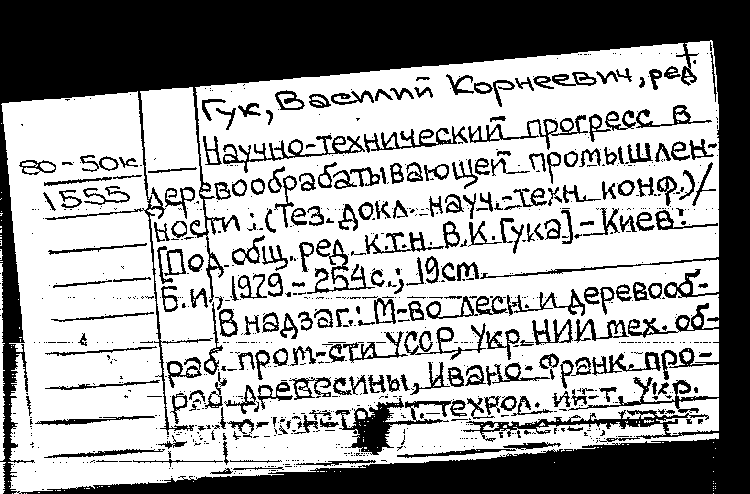 Гук, Василий Корнеевич, ред.
Научно-технический прогресс в
80-50к
1555
деревообрабатывающей промышлен-
ности: (Тез. докл. науч.-техн. конф.)/
[Под общ. ред. к.т.н. В.К.Гука].- Киев:
Б.и., 1979.- 254с.; 19ст.
В надзаг.: М-во лесн. и деревооб-
раб. пром-сти УССР, Укр. НИИ мех. об-
раб. древесины, Ивано-Франк. про-
технол. ин-т. Укр.
см. след. карт.